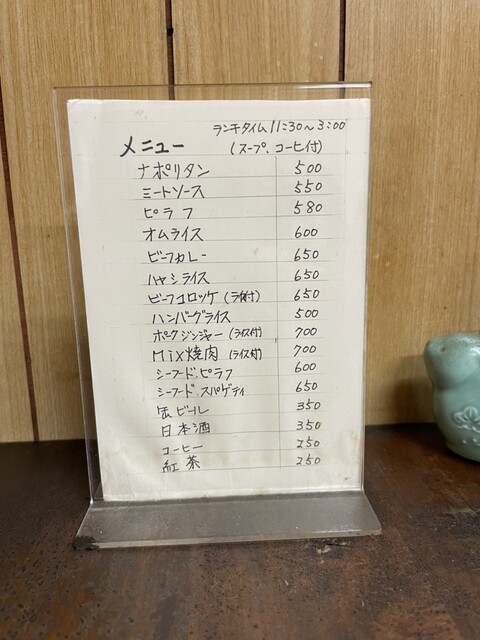 ランチタイム 11:30~3:00
メニュー (スープ、コーヒー付)
ナポリタン 500
ミートソース 550
ピラフ 580
オムライス 600
ビーフカレー 650
ハヤシライス 650
ビーフコロッケ (ライス付) 650
ハンバーグライス 500
ポークジンジャー (ライス付) 700
Mix焼肉 (ライス付) 700
シーフードピラフ 600
シーフードスパゲティ 650
缶ビール 350
日本酒 350
コーヒー 250
紅茶 250